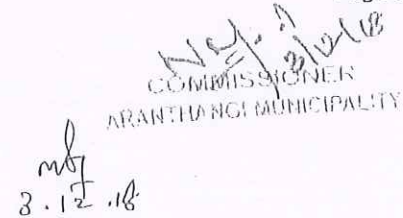 3/12/18
COMMISSIONER
ARANTHANGI MUNICIPALITY
3.12.18